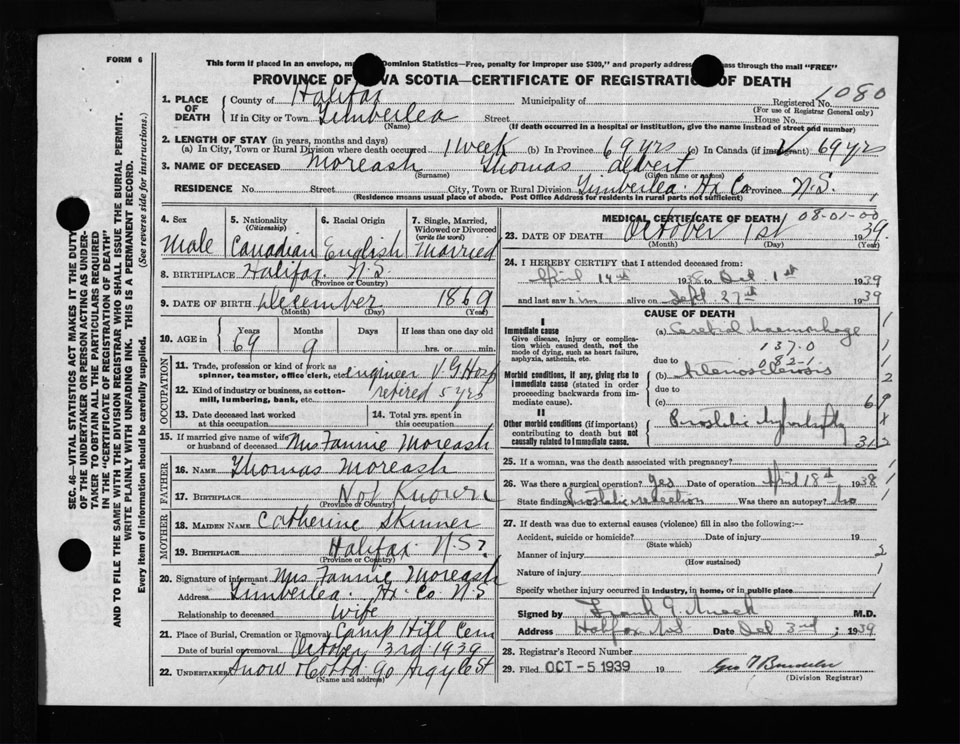 FORM 6
This form if placed in an envelope, Dominion Statistics—Free, penalty for improper use $300," and properly pass through the mail "FREE"
PROVINCE OF NOVA SCOTIA—CERTIFICATE OF REGISTRATION OF DEATH
Registered No. 1080
(For use of Registrar General only)
1. PLACE OF DEATH
County of Halifax Municipality of
If in City or Town Timberlea Street House No.
(Name) (If death occurred in a hospital or institution, give the name instead of street and number)
2. LENGTH OF STAY (in years, months and days)
(a) In City, Town or Rural Division where death occurred 1 week (b) In Province 69 yrs (c) In Canada (if immigrant) 69 yrs
3. NAME OF DECEASED Moreash Thomas Albert
(Surname) (Given name or names)
RESIDENCE No. Street City, Town or Rural Division Timberlea Hx Co Province N.S.
(Residence means usual place of abode. Post Office Address for residents in rural parts not sufficient)
4. Sex Male
5. Nationality (Citizenship) Canadian
6. Racial Origin English
7. Single, Married, Widowed or Divorced (write the word) Married
8. BIRTHPLACE Halifax N.S.
(Province or Country)
9. DATE OF BIRTH December 1869
(Month) (Day) (Year)
10. AGE in Years Months Days If less than one day
69 9 hrs. or min.
OCCUPATION
11. Trade, profession or kind of work as spinner, teamster, office clerk, etc. Engineer V G Hosp
12. Kind of industry or business, as cotton-mill, lumbering, bank, etc. retired 5 yrs
13. Date deceased last worked at this occupation
14. Total yrs. spent in this occupation
15. If married give name of wife or husband of deceased Mrs Fannie Moreash
FATHER
16. NAME Thomas Moreash
17. BIRTHPLACE Not Known
(Province or Country)
MOTHER
18. MAIDEN NAME Catherine Skinner
19. BIRTHPLACE Halifax N.S?
(Province or Country)
20. Signature of informant Mrs Fannie Moreash
Address Timberlea Hx Co N.S
Relationship to deceased Wife
21. Place of Burial, Cremation or Removal Camp Hill Cem
Date of burial or removal October 3rd 1939
22. Undertaker Snow & Co Ltd 90 Argyle St
(Name and address)
MEDICAL CERTIFICATE OF DEATH 08-01-00
23. DATE OF DEATH October 1st 1939.
(Month) (Day)
24. I HEREBY CERTIFY that I attended deceased from:
April 14th 1938 to Oct 1st 1939
and last saw him alive on Sept 27th 1939
CAUSE OF DEATH
I
Immediate cause
Give disease, injury or complication which caused death, not the mode of dying, such as heart failure, asphyxia, asthenia, etc.
(a) Cerebral haemorrhage
137-0
due to 082-1
Morbid conditions, if any, giving rise to immediate cause (stated in order proceeding backwards from immediate cause).
(b) Arteriosclerosis
due to
(c)
69
II
Other morbid conditions (if important) contributing to death but not causally related to immediate cause.
Prostatic hypertrophy
312
25. If a woman, was the death associated with pregnancy?
26. Was there a surgical operation? Yes Date of operation April 18th 1938
State findings Prostatic resection Was there an autopsy? No
27. If death was due to external causes (violence) fill in also the following:—
Accident, suicide or homicide? Date of injury 19
(State which)
Manner of injury
(How sustained)
Nature of injury
Specify whether injury occurred in industry, in home, or in public place
Signed by Frank G. Mack M.D.
Address Halifax N.S. Date Oct 3rd ; 1939
28. Registrar's Record Number
29. Filed OCT - 5 1939 19
(Division Registrar)
SEC. 46—VITAL STATISTICS ACT MAKES IT THE DUTY OF THE UNDERTAKER OR PERSON ACTING AS UNDERTAKER TO OBTAIN ALL THE PARTICULARS REQUIRED IN THE "CERTIFICATE OF REGISTRATION OF DEATH"
AND TO FILE THE SAME WITH THE DIVISION REGISTRAR WHO SHALL ISSUE THE BURIAL PERMIT.
WRITE PLAINLY WITH UNFADING INK. THIS IS A PERMANENT RECORD.
Every item of information should be carefully supplied. (See reverse side for instructions.)